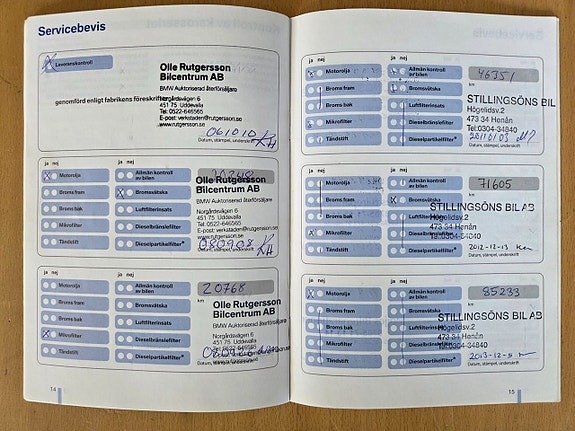 Servicebevis
Leveranskontroll
Olle Rutgersson
Bilcentrum AB
BMW Auktoriserad återförsäljare
genomförd enligt fabrikens föreskrifter
Norgårdsvägen 6
451 75 Uddevalla
Tel: 0522-646565
E-post: verkstaden@rutgersson.se
www.rutgersson.se
061010 RH
Datum, stämpel, underskrift
ja nej
ja nej
X Motorolja
Allmän kontroll av bilen
Olle Rutgersson
Bilcentrum AB
BMW Auktoriserad återförsäljare
Broms fram
X Bromsvätska
Norgårdsvägen 6
451 75 Uddevalla
Tel: 0522-646565
Broms bak
Luftfilterinsats
E-post: verkstaden@rutgersson.se
www.rutgersson.se
X Mikrofilter
Dieselbränslefilter
Tändstift
Dieselpartikelfilter*
080908 RH
Datum, stämpel, underskrift
ja nej
ja nej
20768
km
X Motorolja
Allmän kontroll av bilen
Broms fram
Bromsvätska
Olle Rutgersson
Bilcentrum AB
BMW Auktoriserad återförsäljare
Broms bak
Luftfilterinsats
Norgårdsvägen 6
451 75 Uddevalla
Tel: 0522-646565
X Mikrofilter
Dieselbränslefilter
E-post: verkstaden@rutgersson.se
www.rutgersson.se
Tändstift
Dieselpartikelfilter*
Datum, stämpel, underskrift
14
ja nej
ja nej
46351
km
Motorolja
Allmän kontroll av bilen
Broms fram
Bromsvätska
STILLINGSÖNS BIL
Broms bak
Luftfilterinsats
Högelidsv.2
473 34 Henån
X Mikrofilter
Dieselbränslefilter
Tel:0304-34840
Tändstift
Dieselpartikelfilter*
Datum, stämpel, underskrift
ja nej
ja nej
71605
km
Motorolja
Allmän kontroll av bilen
Broms fram
X Bromsvätska
STILLINGSÖNS BIL AB
Broms bak
Luftfilterinsats
Högelidsv.2
473 34 Henån
X Mikrofilter
Dieselbränslefilter
Tel:0304-34840
Tändstift
Dieselpartikelfilter*
2012-12-13
Datum, stämpel, underskrift
ja nej
ja nej
85233
km
X Motorolja
Allmän kontroll av bilen
Broms fram
Bromsvätska
Broms bak
Luftfilterinsats
STILLINGSÖNS BIL AB
Högelidsv.2
473 34 Henån
X Mikrofilter
Dieselbränslefilter
Tel:0304-34840
Tändstift
Dieselpartikelfilter*
2013-12-5
Datum, stämpel, underskrift
15